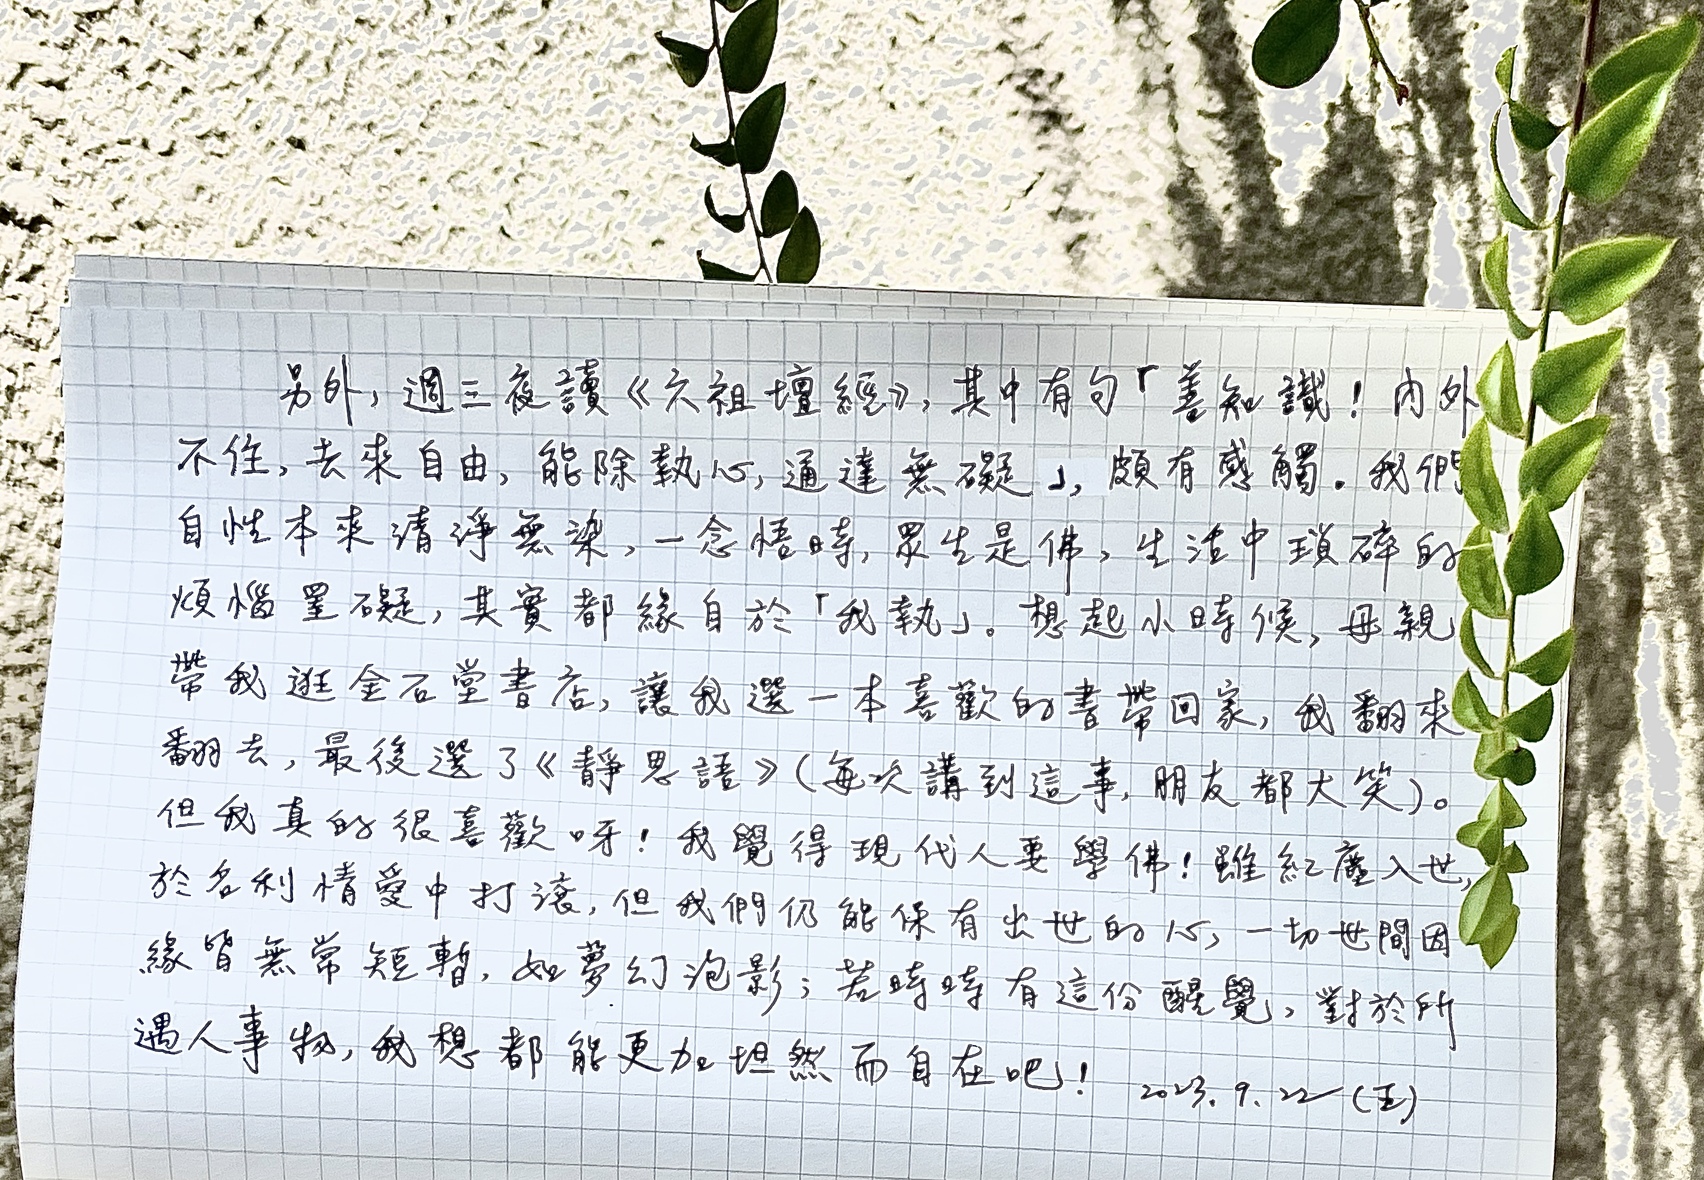 另外,週三夜讀《六祖壇經》,其中有句「善知識!內外
不住,去來自由,能除執心,通達無礙」,頗有感觸。我們
自性本來清淨無染,一念悟時,眾生是佛,生活中瑣碎的
煩惱罣礙,其實都緣自於「我執」。想起小時候,母親
帶我逛金石堂書店,讓我選一本喜歡的書帶回家,我翻來
翻去,最後選了《靜思語》(每次講到這事,朋友都大笑)。
但我真的很喜歡呀!我覺得現代人要學佛!雖紅塵入世,
於名利情愛中打滾,但我們仍能保有出世的心,一切世間因
緣皆無常短暫,如夢幻泡影;若時時有這份醒覺,對於所
遇人事物,我想都能更加坦然而自在吧!
2023.9.22(五)